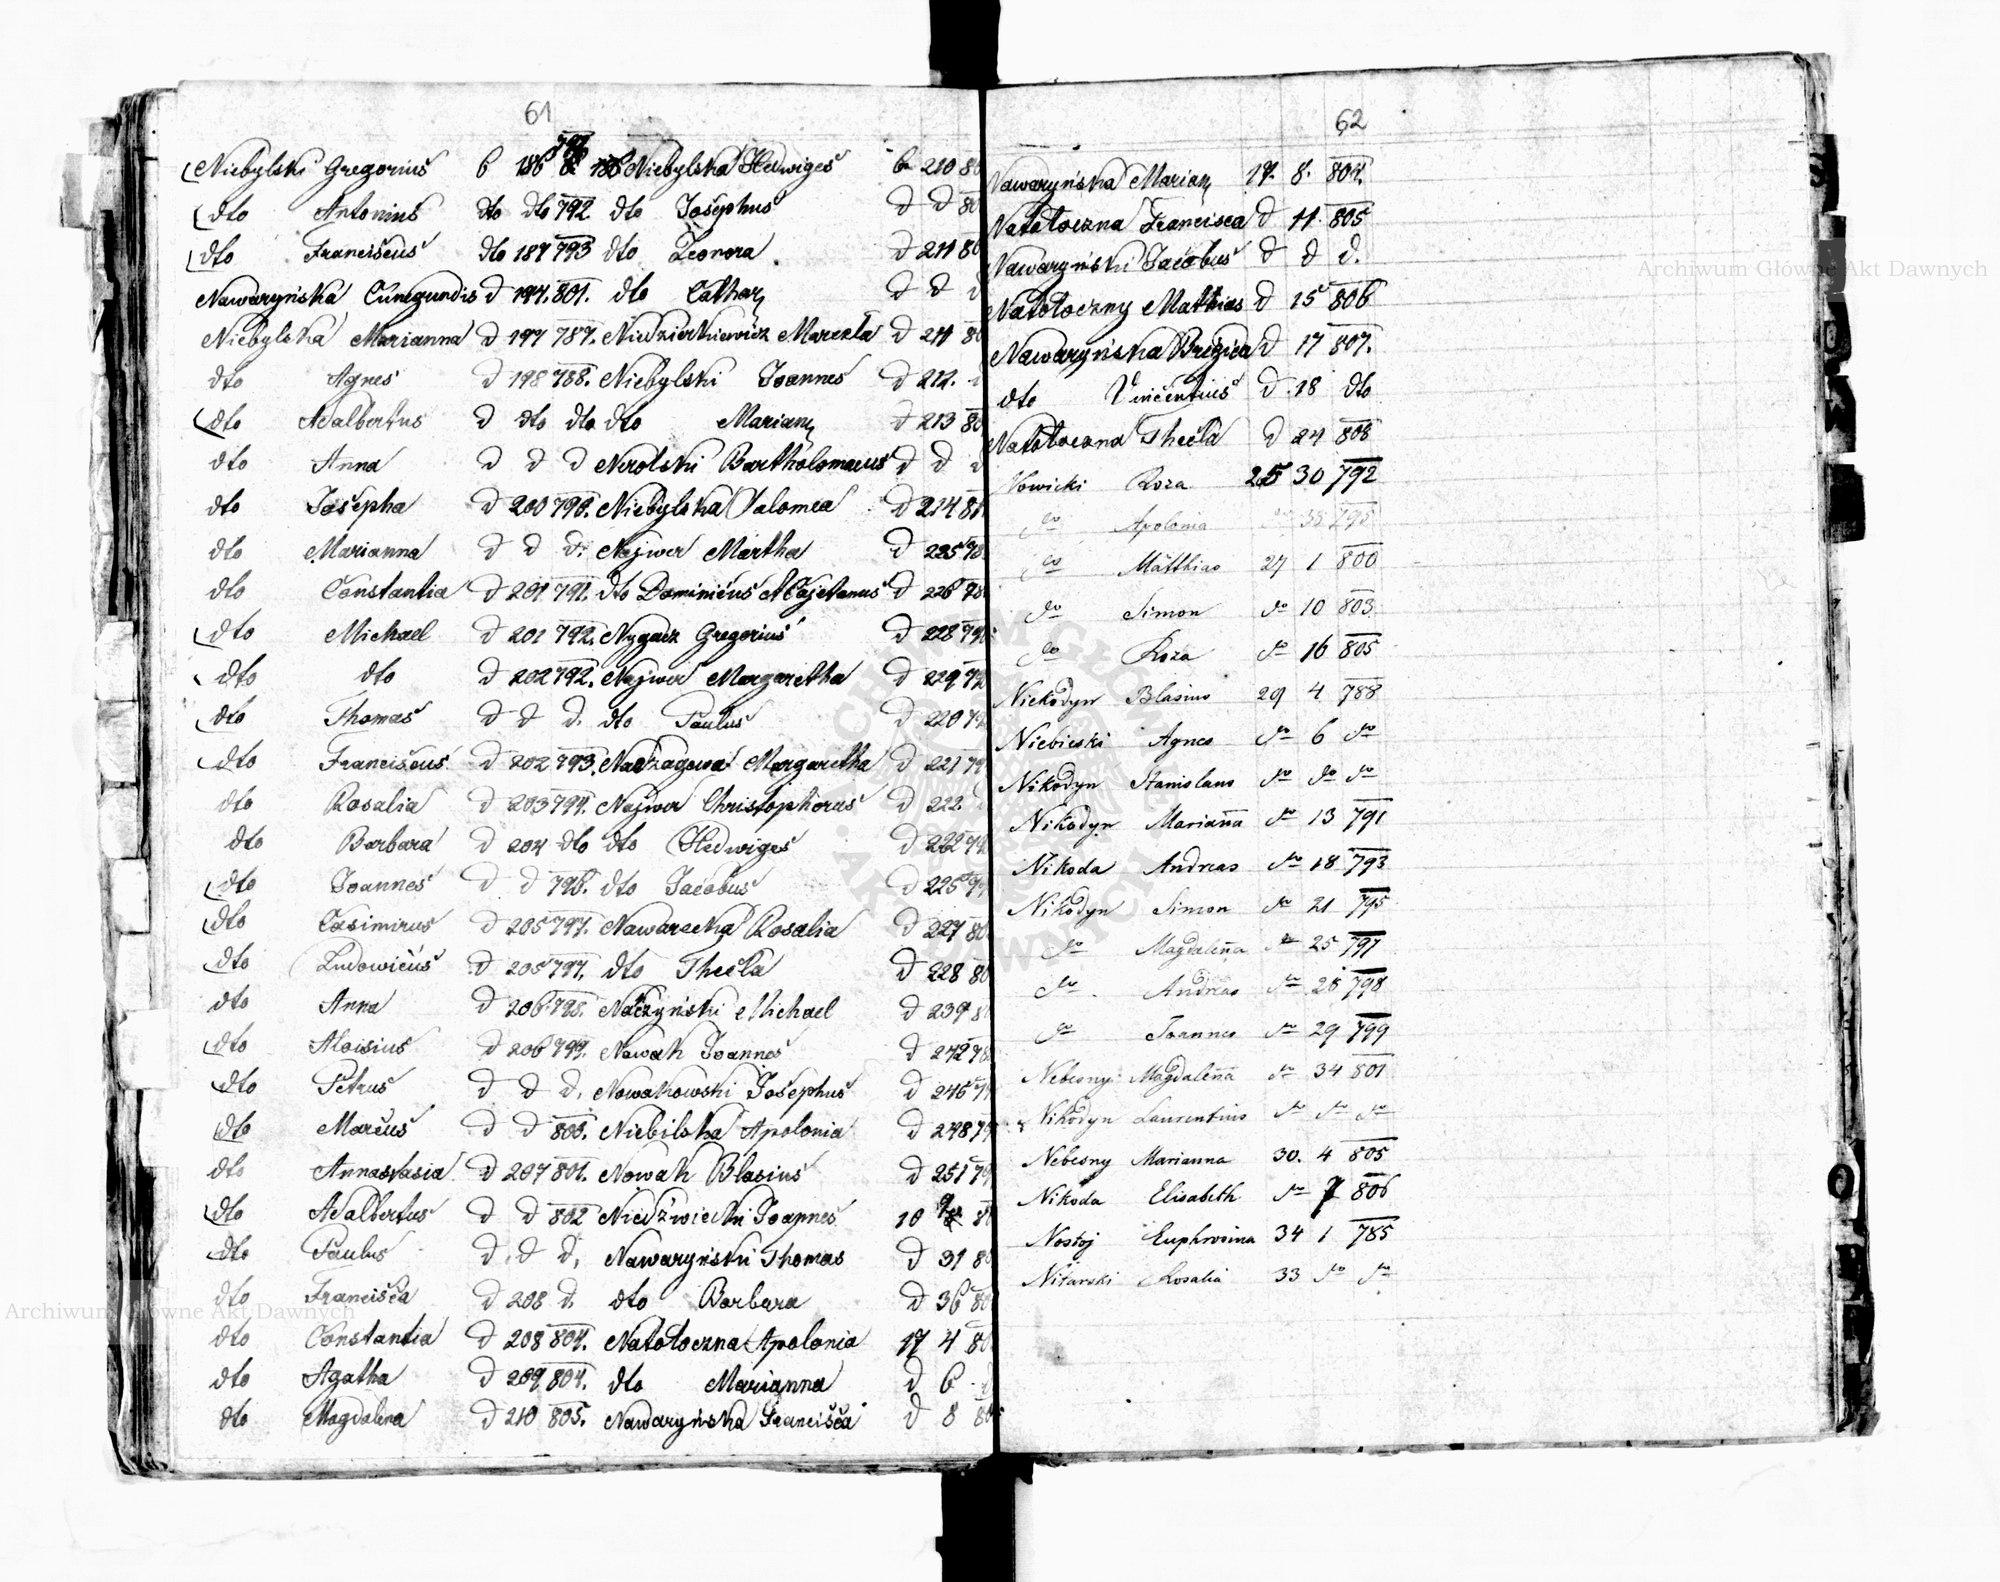 61
Niebylski Gregorius 6 186 792
dto Antonius dto dto 792
dto Franciscus dto 187 793
Nawaryńska Cunegundis d 194. 801.
Niebylska Marianna d 197 787.
dto Agnes d 198 788.
dto Adalbertus d dto dto
dto Anna d d d
dto Josepha d 200 790.
dto Marianna d d d.
dto Constantia d 201 791.
dto Michael d 201 792.
dto dto d 202 792.
dto Thomas d d d.
dto Franciscus d 202 793.
dto Rosalia d 203 794.
dto Barbara d 204 dto
dto Joannes d d 796.
dto Casimirus d 205 797.
dto Ludowicus d 205 797.
dto Anna d 206. 798.
dto Aloisius d 206 799.
dto Petrus d d d.
dto Marcus d d 800.
dto Annastasia d 207 801.
dto Adalbertus d d 802
dto Paulus d. d d.
dto Francisca d 208 d.
dto Constantia d 208 804.
dto Agatha d 209 804.
dto Magdalena d 210 805.
Niebylska Hedwiges 6 210 80
dto Josephus d d 80
dto Leonora d 211 80
dto Cathar d d
Niedzierkiewicz Marcela d 211 80
Niebylski Joannes d 212.
dto Mariann d 213 80
Nerolski Bartholomaeus d d
Niebylska Salomea d 214 81
Najwer Martha d 225 78
dto Dominicus Cajetanus d 226 78
Nygacz Gregorius d 228 79
Najwer Margaretha d 229 79
dto Paulus d 220 79
Nadzagowa Margaretha d 221 79
Najwer Christophorus d 222.
dto Hedwiges d 222 79
dto Jacobus d 225 79
Nawarecka Rosalia d 227 80
dto Thecla d 228 80
Naczyński Michael d 239 8
Nowak Joannes d 242 78
Nowakowski Josephus d 246 79
Niebilska Apolonia d 248 79
Nowak Blasius d 251 79
Niedzwiecki Joannes 10 8
Nawaryński Thomas d 31 80
dto Barbara d 36 80
Natołoczna Apolonia 17 4 80
dto Marianna d 6
Nawaryńska Francisca d 8 80
62
Nawaryńska Mariann 17. 8. 804.
Natołoczna Francisca d 11. 805
Nawaryński Jacobus d d d.
Natołoczny Mathias d 15 806
Nawaryńska Brigica d 17 807.
dto Vincentius d. 18 dto
Natołoczna Thecla d 24 808
Nowicki Roza 25 30 792
do Apolonia do 38 795
do Matthias 27 1 800
do Simon do 10 803
do Roza do 16 805
Niekodyn Blasius 29 4 788
Niebieski Agnes do 6 do
Nikodyn Stanislaus do do do
Nikodyn Marianna do 13 791
Nikoda Andreas do 18 793
Nikodyn Simon do 21 795
do Magdalena do 25 797
do Andreas do 28 798
do Joannes do 29 799
Nebesny Magdalena do 34 801
Nikodyn Laurentius do do do
Nebesny Marianna 30. 4 805
Nikoda Elisabeth do 7 806
Nostoj Euphrosina 34 1 785
Nitarski Rosalia 33 do do
Archiwum Główne Akt Dawnych
Archiwum Główne Akt Dawnych